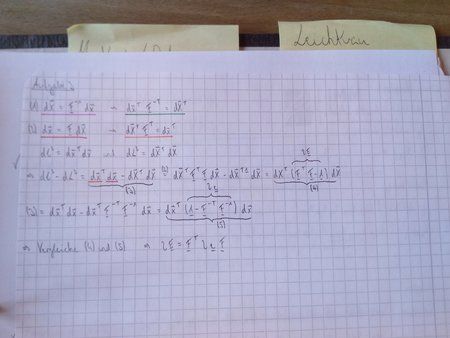 Leichtbau
Aufgabe 3
(1) dX = F⁻¹ dx → dx^T F^-T = dX^T
(2) dx = F dX → dX^T F^T = dx^T
dl² = dx^T dx und dL² = dX^T dX
⇒ dl² - dL² = dx^T dx - dX^T dX (2) dX^T F^T F dX - dX^T 1 dX = dX^T (F^T F - 1) dX
2E
(3)
(4)
(3) = dx^T dx - dx^T F^-T F^-1 dx = dx^T (1 - F^-T F^-1) dx
2e
(5)
⇒ Vergleiche (4) und (5) ⇒ 2E = F^T 2e F